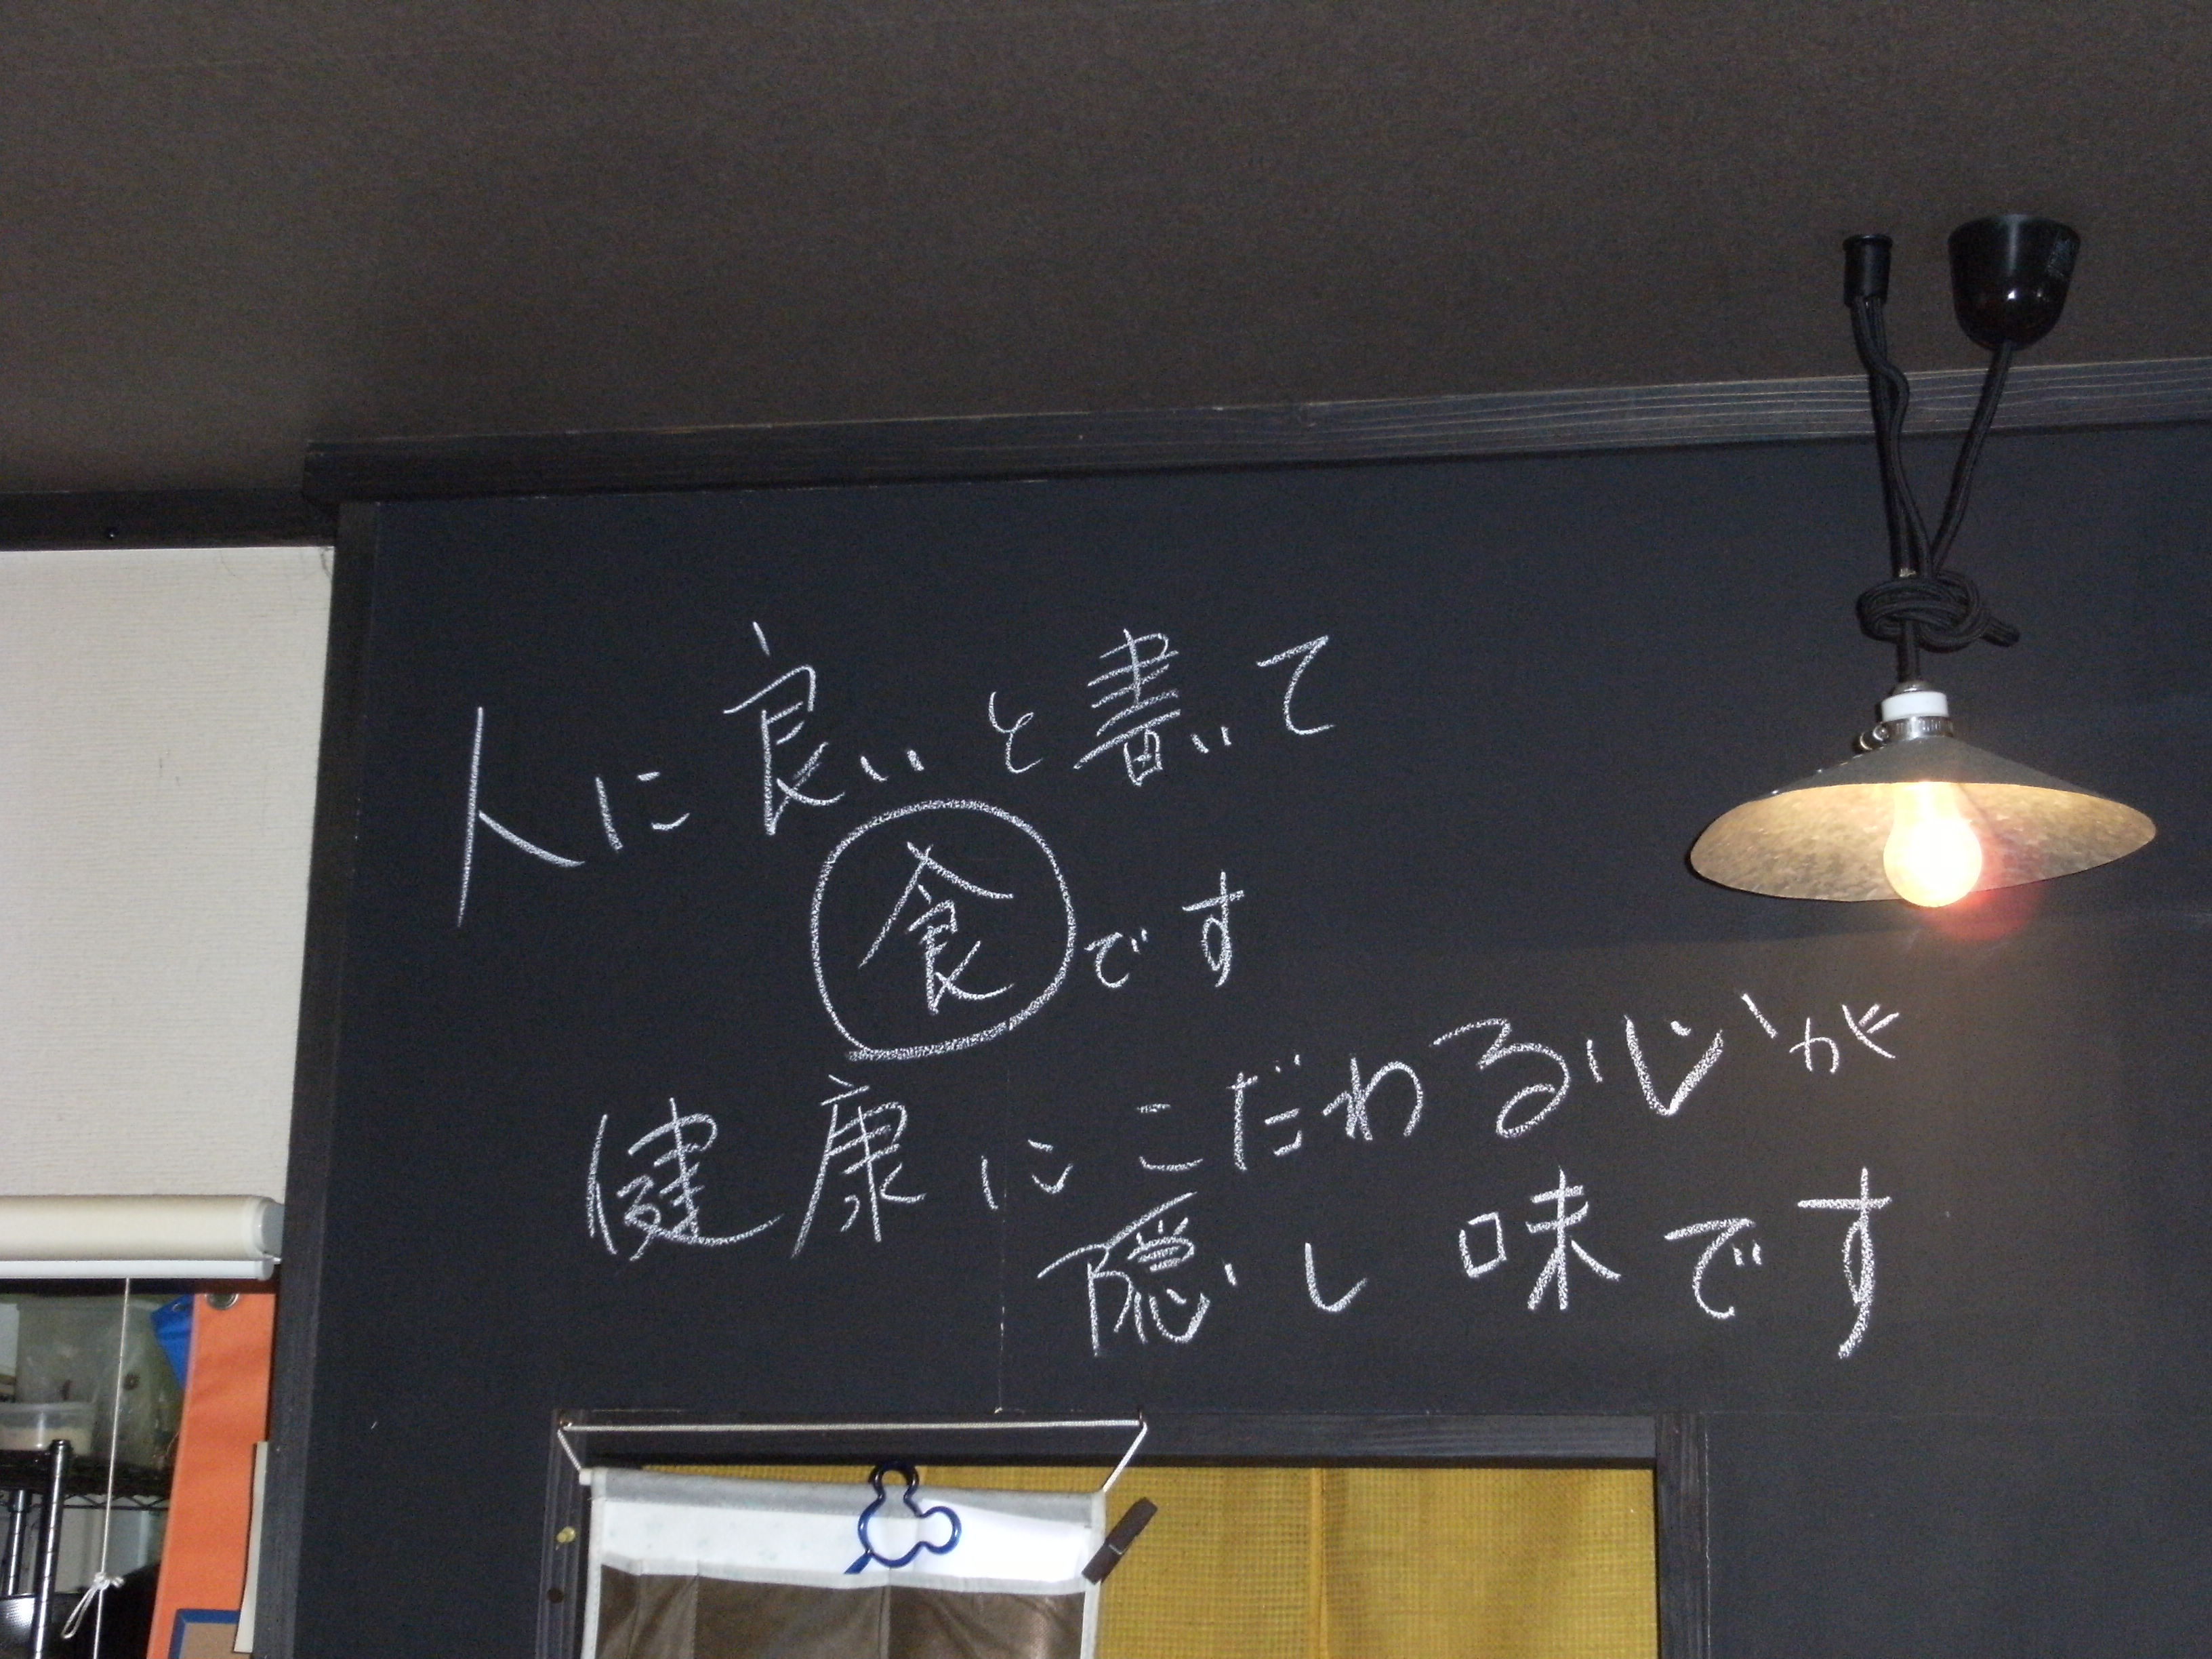 人に良いと書いて
食です
健康にこだわる心が
隠し味です